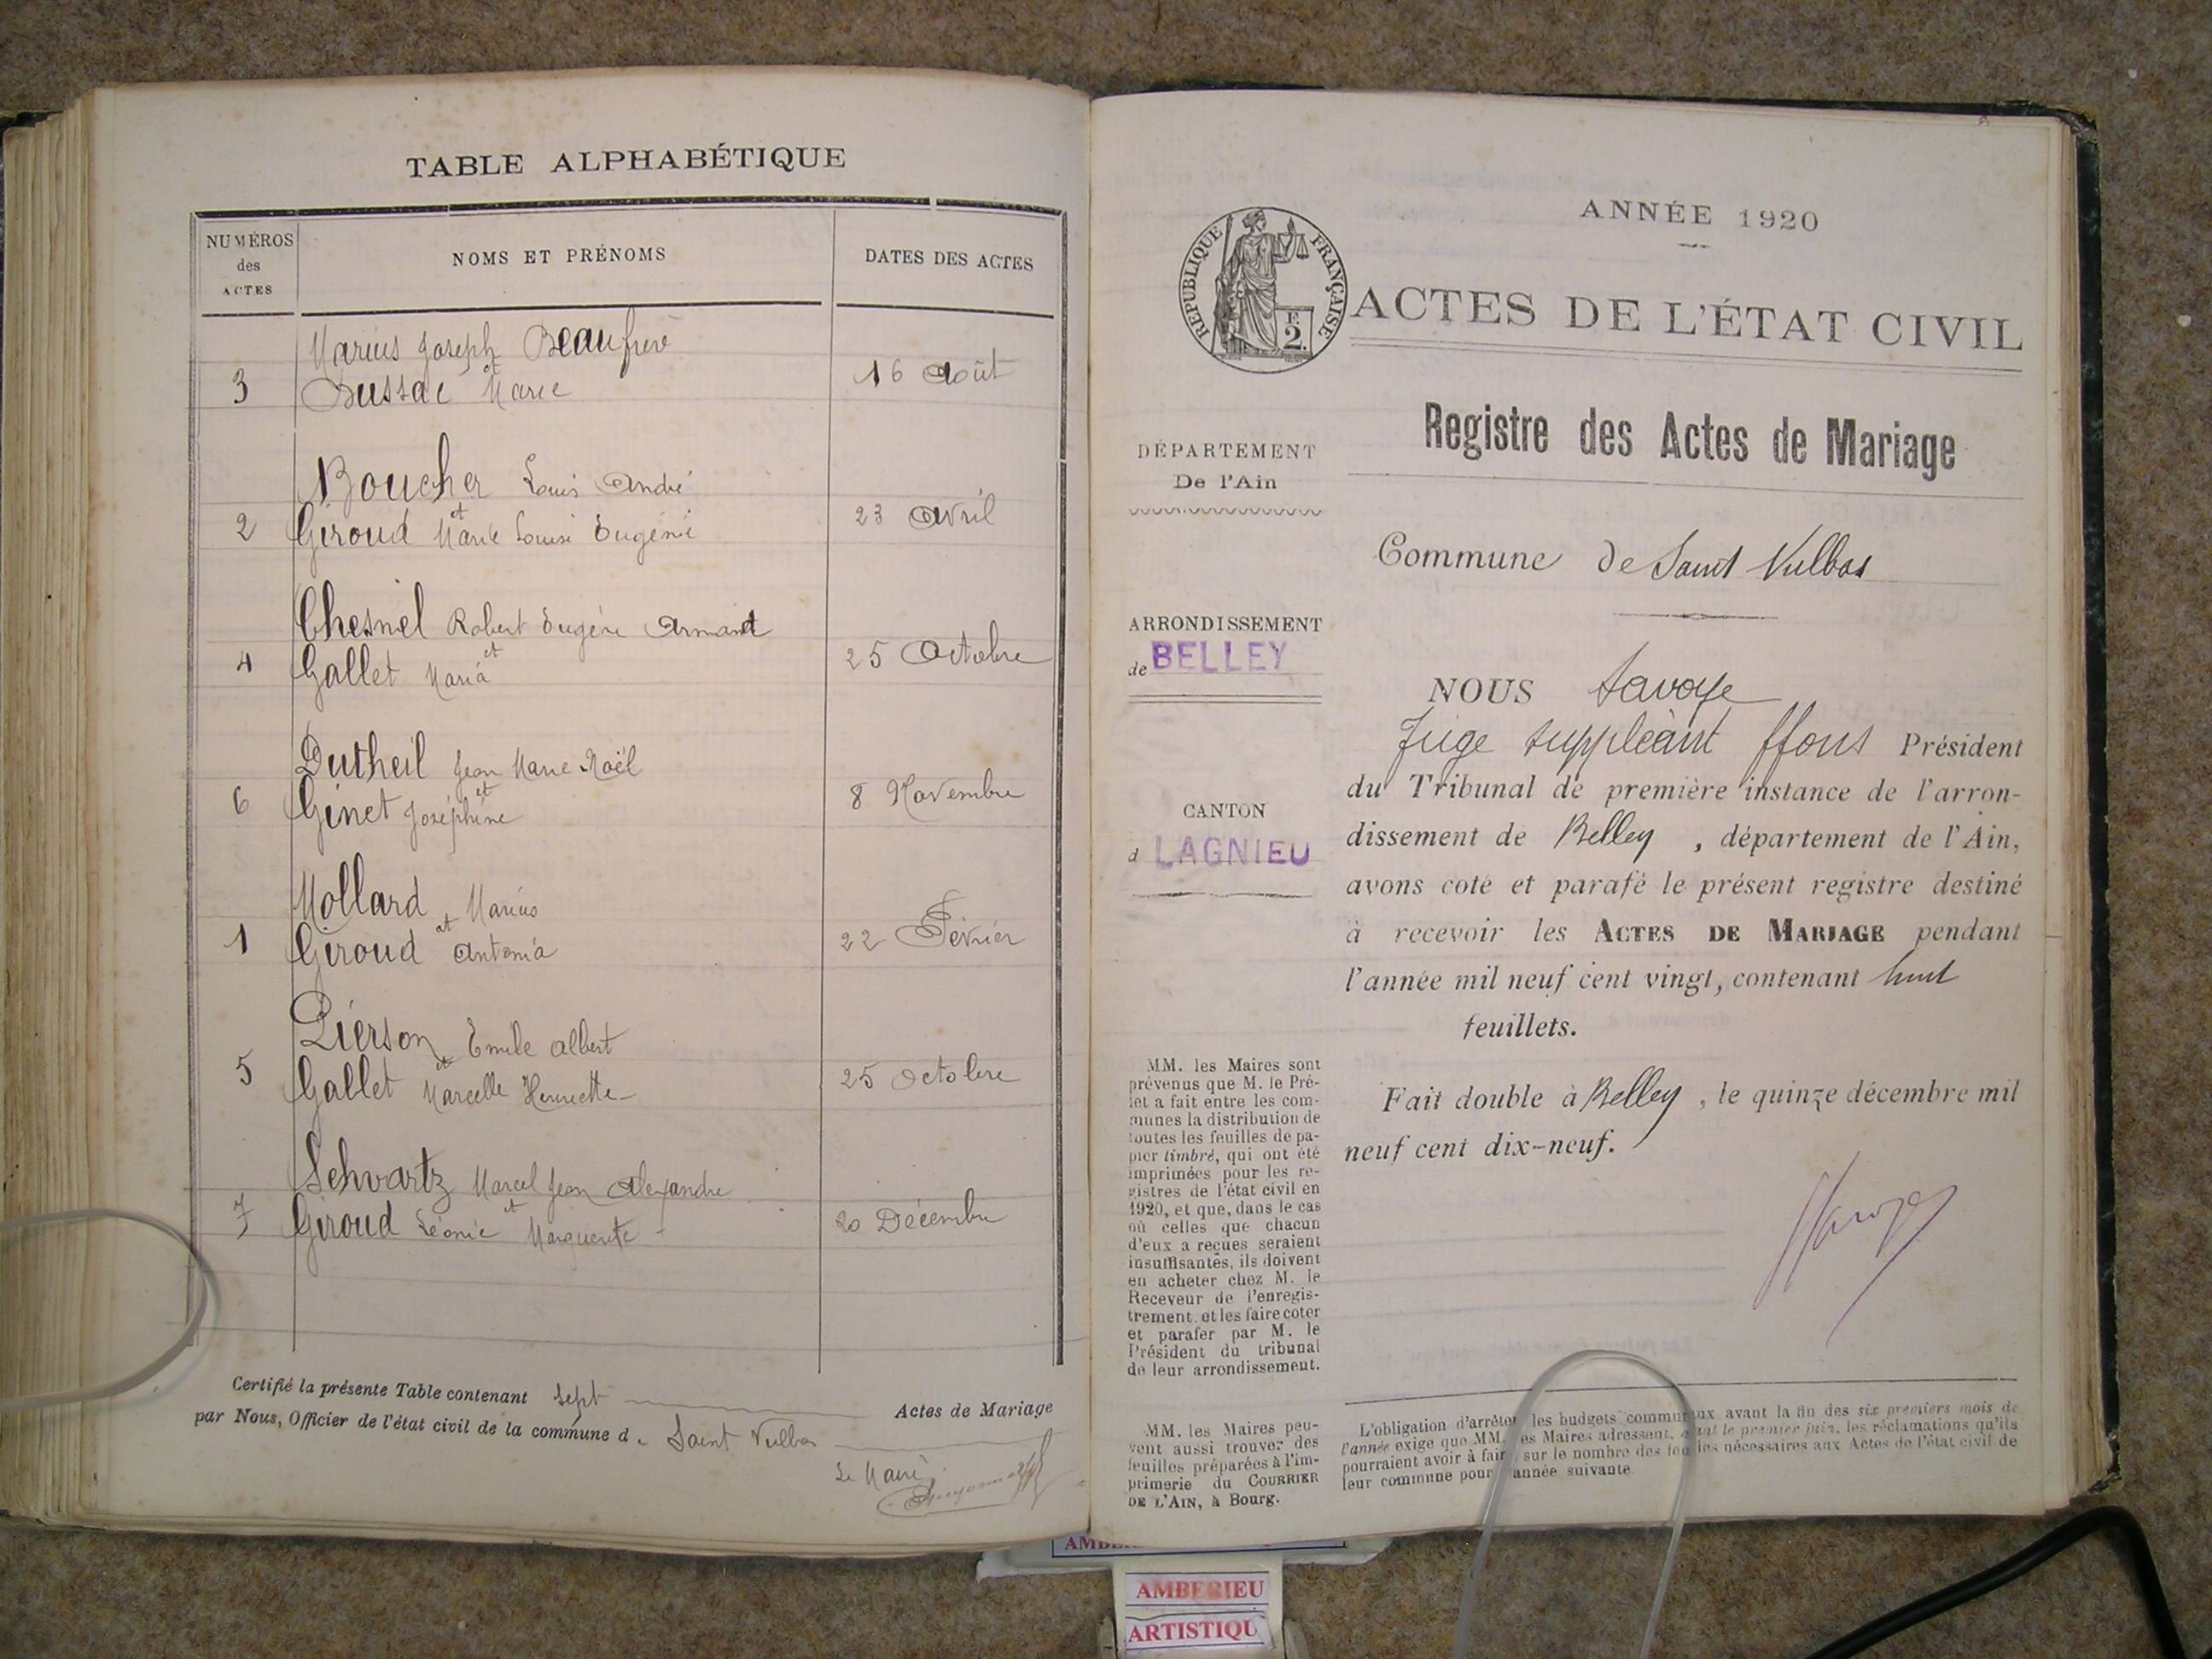 TABLE ALPHABÉTIQUE
NUMÉROS
des
ACTES
NOMS ET PRÉNOMS
DATES DES ACTES
Marius Joseph Beaufrère
et
3 Dussac Marie 16 Août
Boucher Louis André
et
2 Giroud Marie Louise Eugénie 23 Avril
Chesnel Robert Eugène Armand
et
4 Gallet Maria 25 Octobre
Dutheil Jean Marie Noël
et
6 Ginet Joséphine 8 Novembre
Mollard Marius
et
1 Giroud Antonia 22 Février
Pierson Emile Albert
et
5 Gallet Marcelle Henriette 25 Octobre
Schvartz Marcel Jean Alexandre
et
7 Giroud Léonie Marguerite 20 Décembre
Certifié la présente Table contenant sept Actes de Mariage
par Nous, Officier de l'état civil de la commune d e Saint Vulbas
Le Maire
ANNÉE 1920
REPUBLIQUE FRANÇAISE
2 F.
ACTES DE L'ÉTAT CIVIL
Registre des Actes de Mariage
DÉPARTEMENT
De l'Ain
ARRONDISSEMENT
de BELLEY
CANTON
d LAGNIEU
MM. les Maires sont
prévenus que M. le Pré-
fet a fait entre les com-
munes la distribution de
toutes les feuilles de pa-
pier timbré, qui ont été
imprimées pour les re-
gistres de l'état civil en
1920, et que, dans le cas
où celles que chacun
d'eux a reçues seraient
insuffisantes, ils doivent
en acheter chez M. le
Receveur de l'enregis-
trement. et les faire coter
et parafer par M. le
Président du tribunal
de leur arrondissement.
MM. les Maires peu-
vent aussi trouver des
feuilles préparées à l'im-
primerie du COURRIER
DE L'AIN, à Bourg.
Commune de Saint Vulbas
NOUS Savoye
Juge suppléant ffons Président
du Tribunal de première instance de l'arron-
dissement de Belley , département de l'Ain,
avons coté et parafé le présent registre destiné
à recevoir les ACTES DE MARIAGE pendant
l'année mil neuf cent vingt, contenant huit
feuillets.
Fait double à Belley , le quinze décembre mil
neuf cent dix-neuf.
Savoye
L'obligation d'arrêter les budgets communaux avant la fin des six premiers mois de
l'année exige que MM. les Maires adressent, avant le premier juin, les réclamations qu'ils
pourraient avoir à faire sur le nombre des feuilles nécessaires aux Actes de l'état civil de
leur commune pour l'année suivante.
AMBERIEU
ARTISTIQU